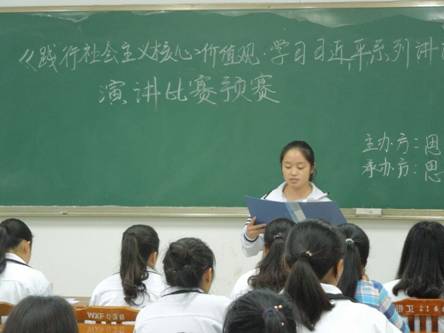 《践行社会主义核心价值观·学习习近平系列讲
演讲比赛预赛
主办方：思
承办方：思
WXF